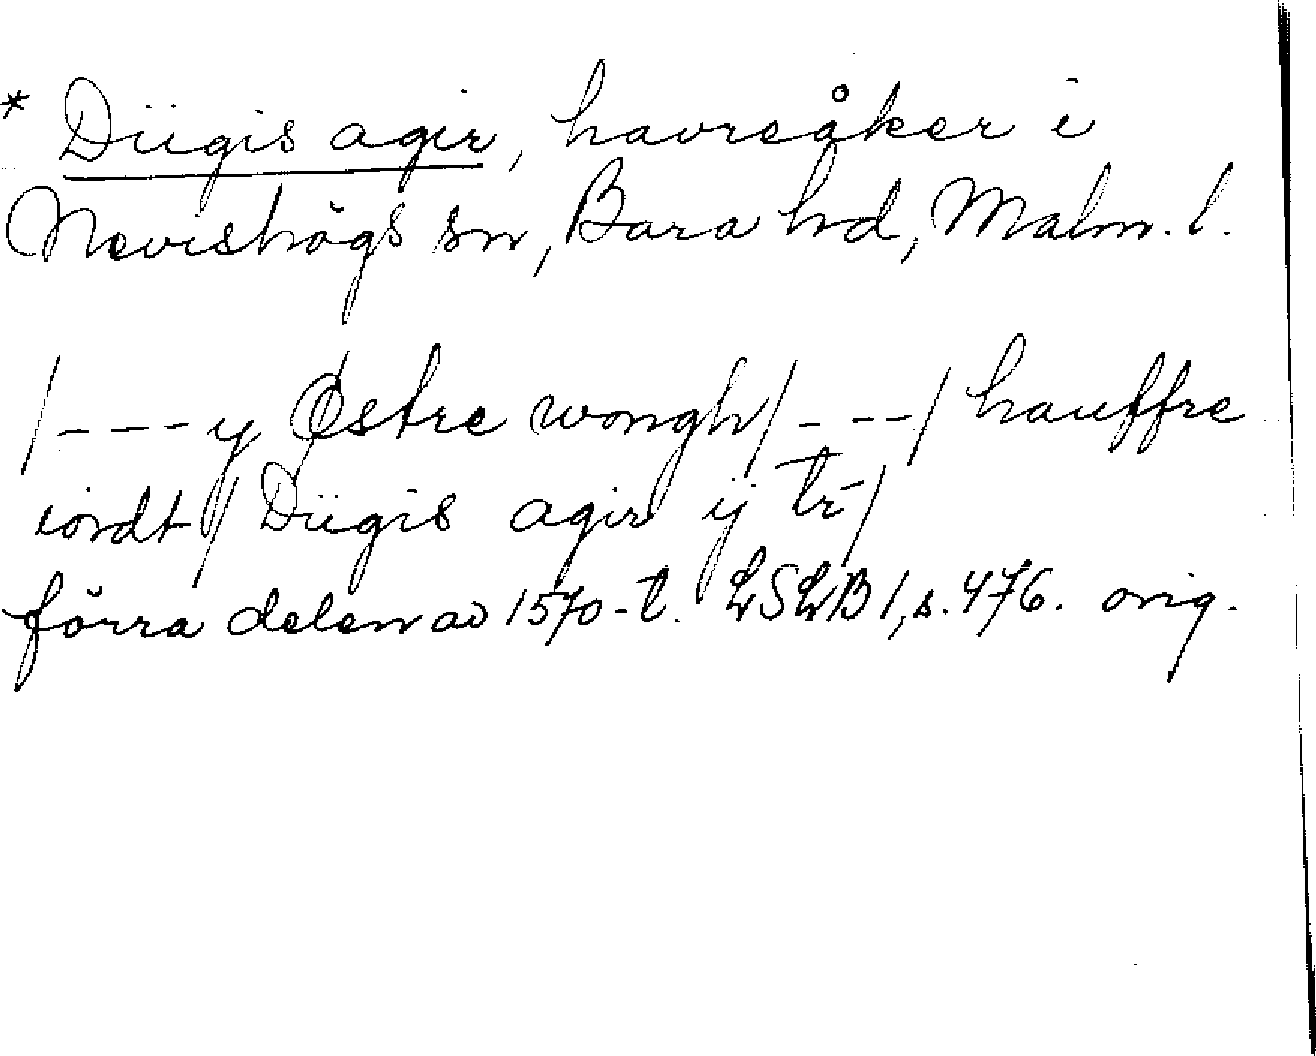 * Diigis agir, havreåker i
Nevishögs sn, Bara hd, Malm. l.
/---y Østre wongh/---/ hauffre
iordt/ Diigis agir ij tr-/
förra delen av 1570-t. LSLB 1, s. 476. orig.